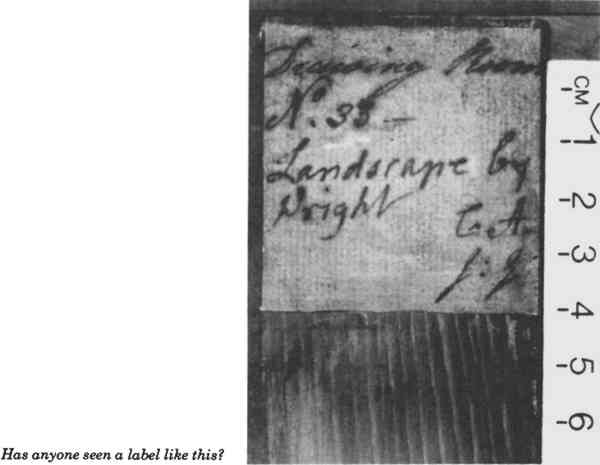 Room
N.
Landscape by
Wright
CM
1
2
3
4
5
6
Has anyone seen a label like this?